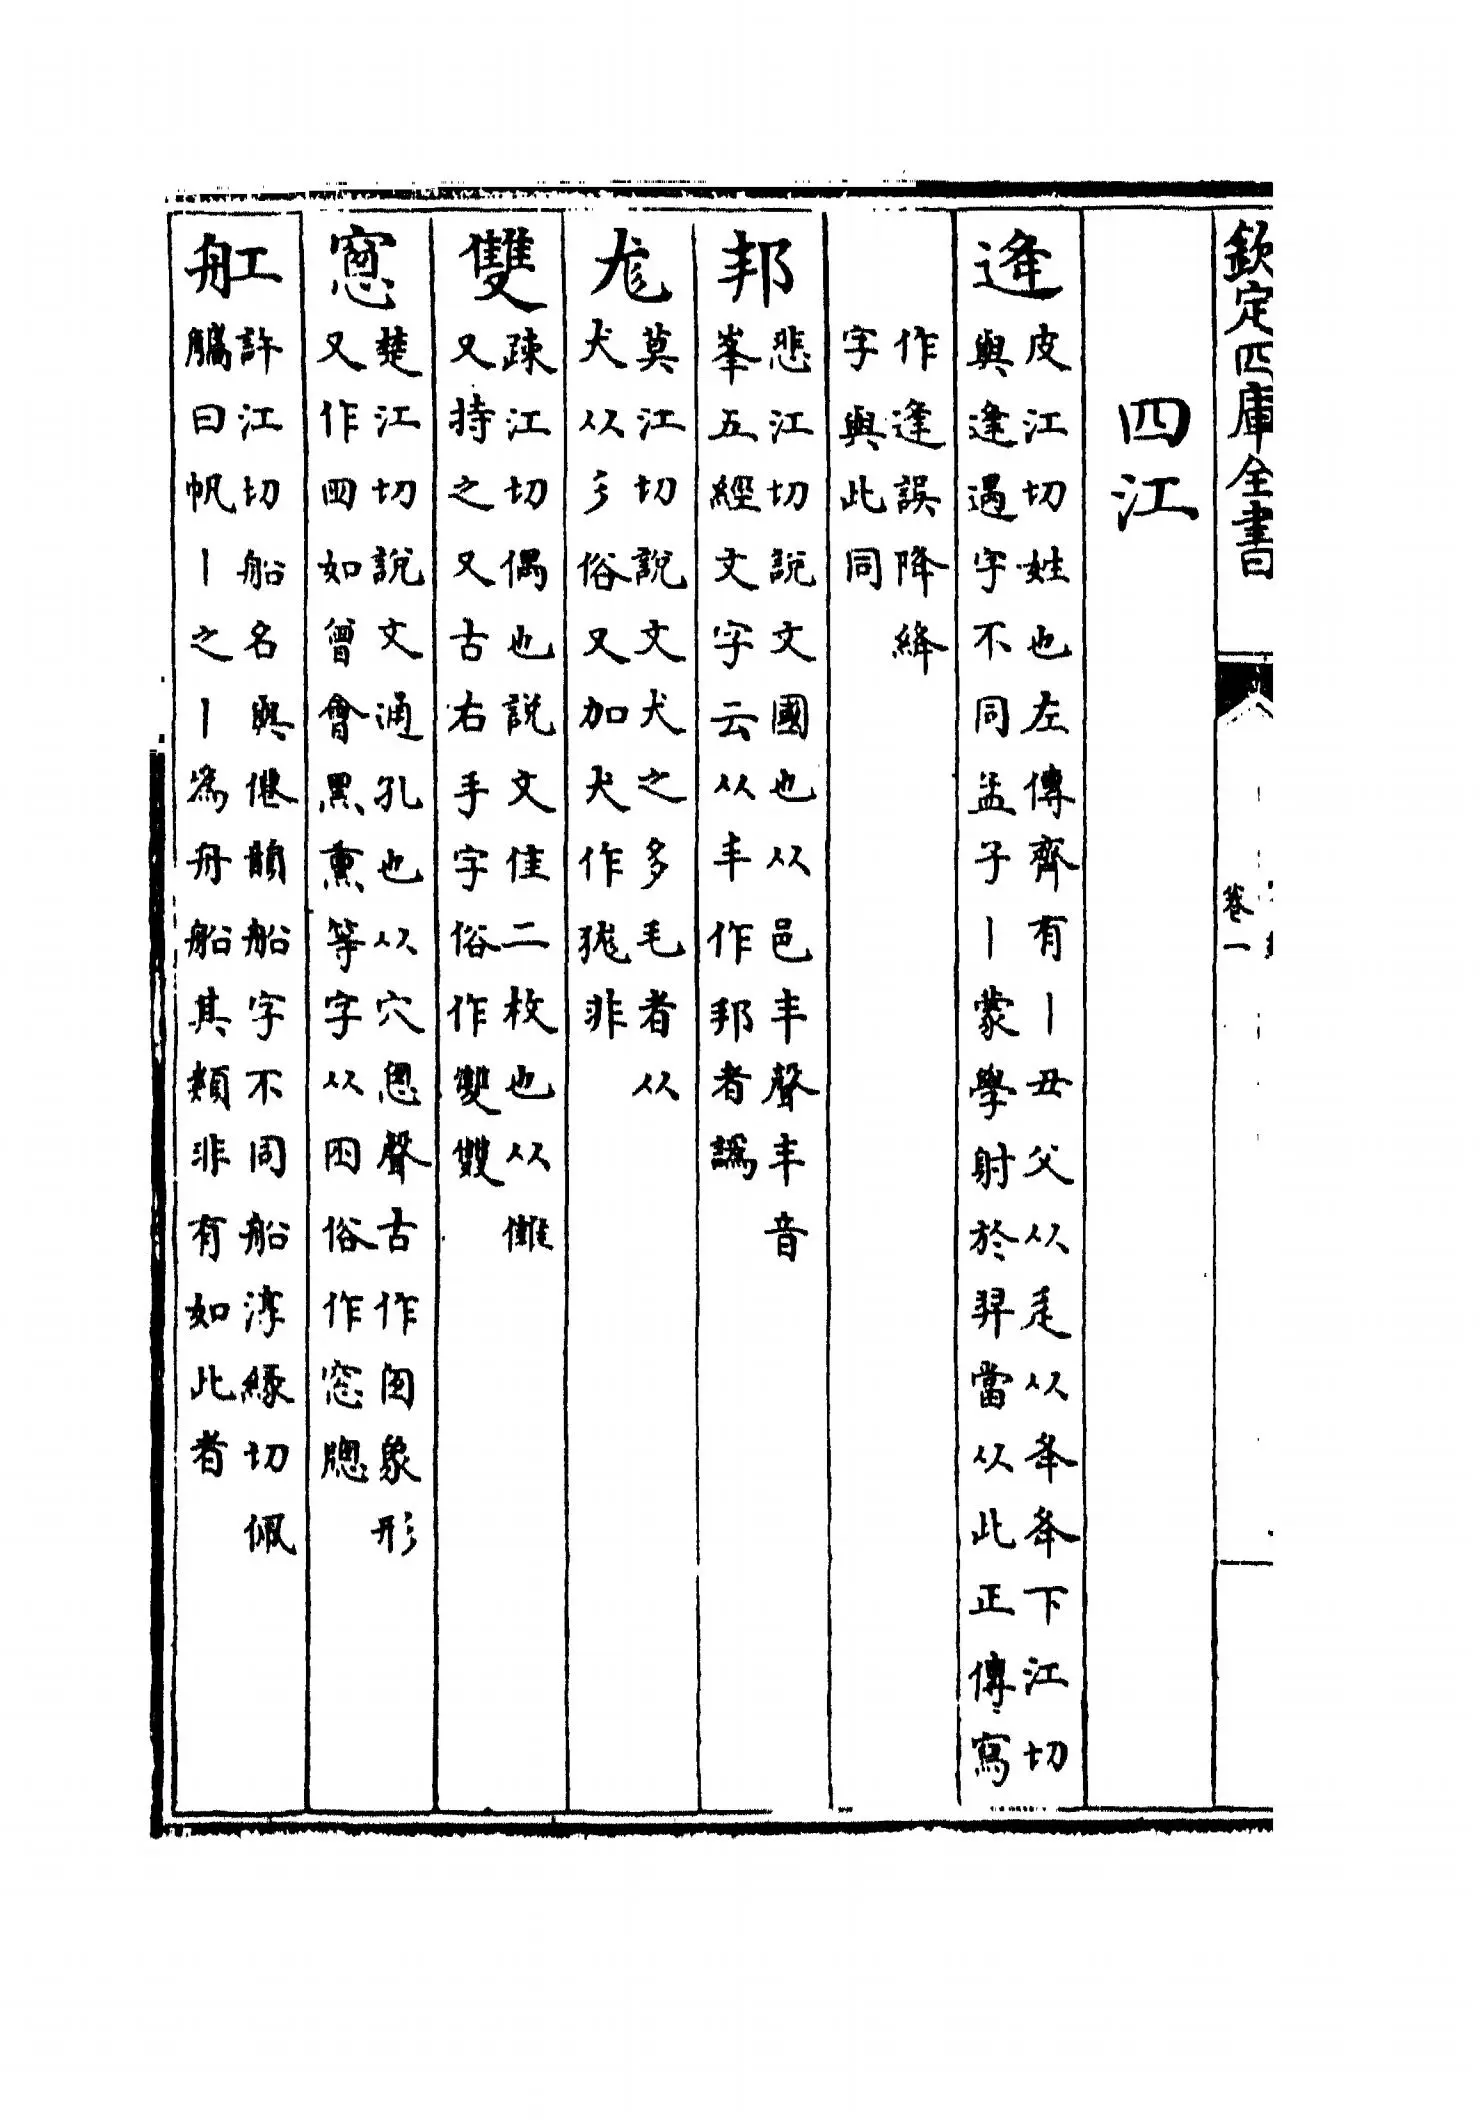 欽定四庫全書
卷一
四江
逄皮江切姓也左傳齊有丨丑父从辵从夅夅下江切
與逢遇字不同孟子丨蒙學射於羿當从此正傳寫
作逢誤降絳
字與此同
邦悲江切說文國也从邑丰聲丰音
峯五經文字云从丰作邦者譌
尨莫江切說文犬之多毛者从
犬从彡俗又加犬作狵非
雙疎江切偶也說文隹二枚也从雔
又持之又古右手字俗作雙㕠
窻楚江切說文通孔也从穴悤聲古作囱象形
又作囧如曾會黑熏等字从囱俗作窓牎
舡許江切船名與僊韻船字不同船淳緣切佩
觿曰帆丨之丨為舟船船其類非有如此者